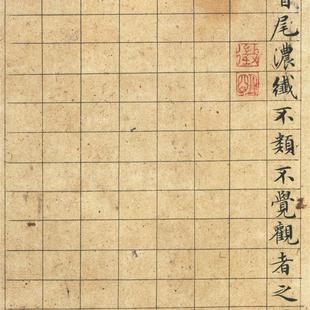 尾濃纖不類不覺觀者之